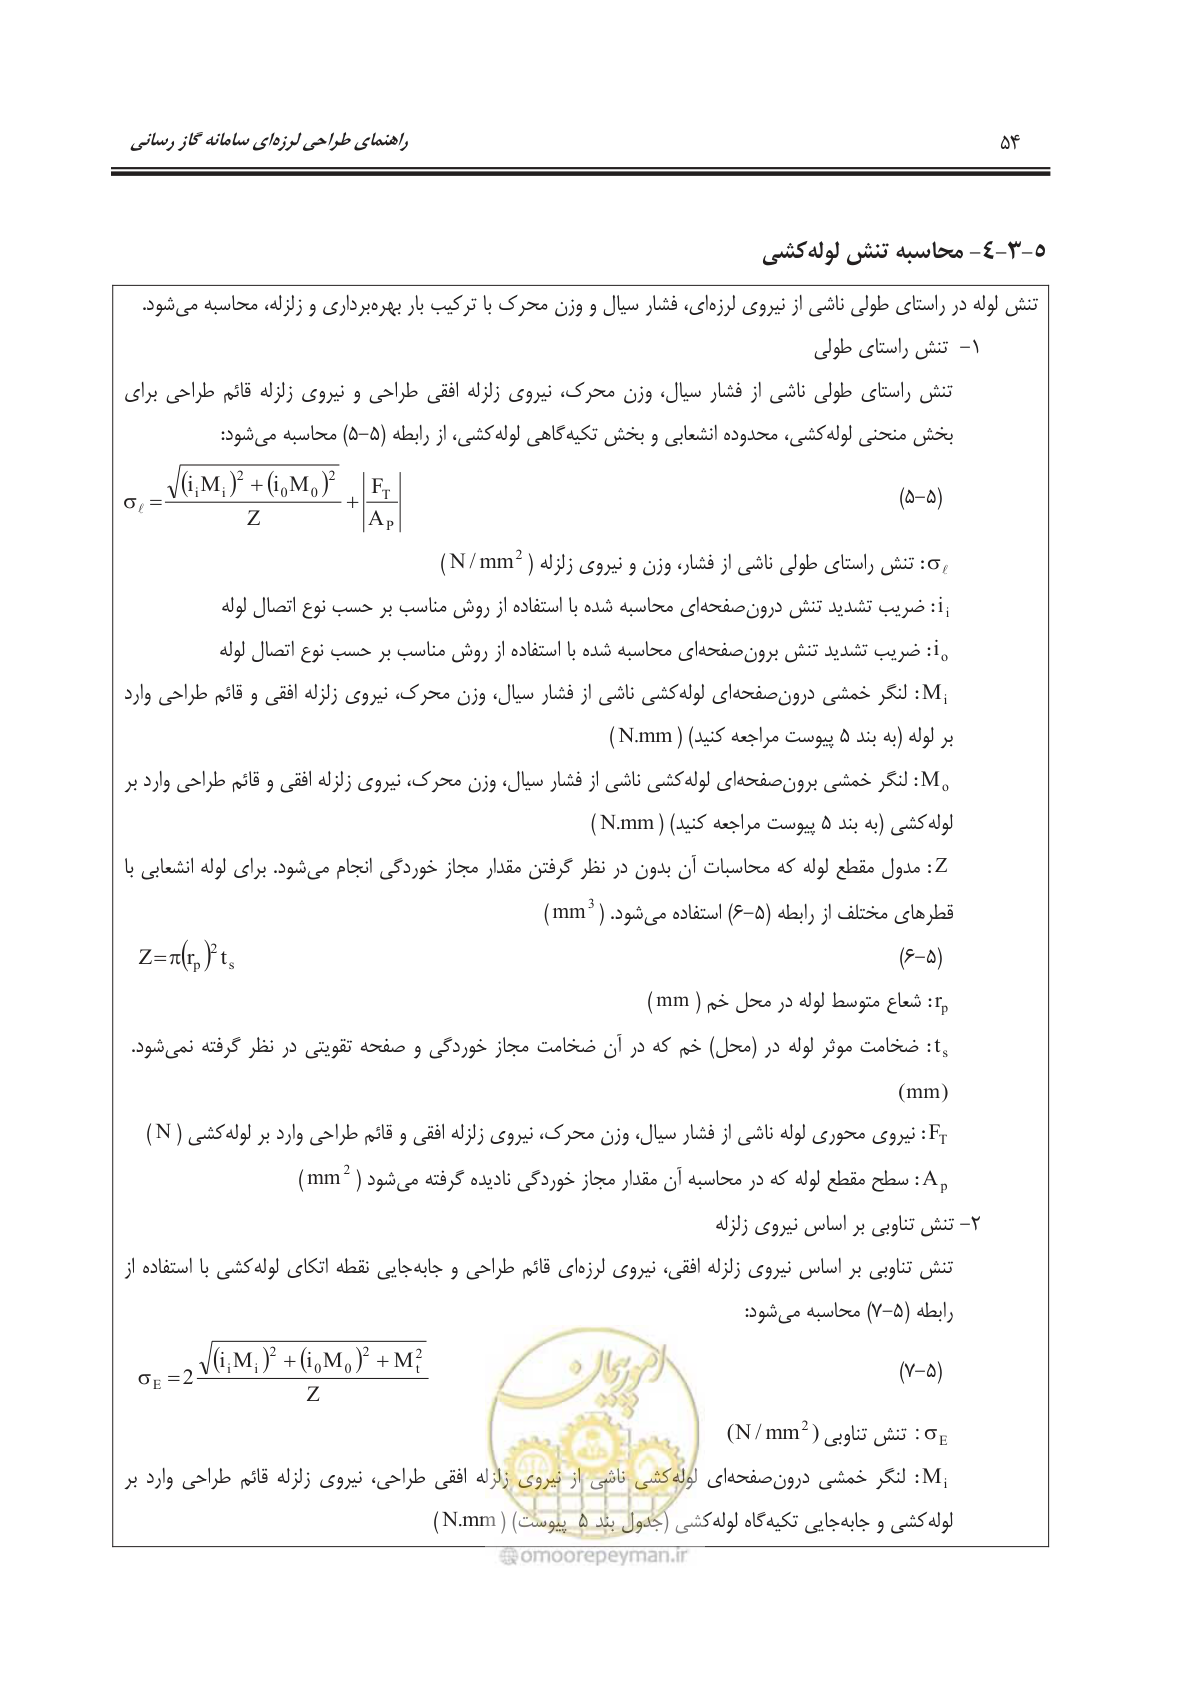 ۵۴
راهنمای طراحی لرزه‌ای سامانه گاز رسانی
۵-۳-۴- محاسبه تنش لوله‌کشی
تنش لوله در راستای طولی ناشی از نیروی لرزه‌ای، فشار سیال و وزن محرک با ترکیب بار بهره‌برداری و زلزله، محاسبه می‌شود.
۱- تنش راستای طولی
تنش راستای طولی ناشی از فشار سیال، وزن محرک، نیروی زلزله افقی طراحی و نیروی زلزله قائم طراحی برای
بخش منحنی لوله‌کشی، محدوده انشعابی و بخش تکیه‌گاهی لوله‌کشی، از رابطه (۵-۵) محاسبه می‌شود:
(۵-۵) σℓ = √((iᵢMᵢ)² + (i₀M₀)²) / Z + |F_T / A_P|
σℓ: تنش راستای طولی ناشی از فشار، وزن و نیروی زلزله (N/mm²)
iᵢ: ضریب تشدید تنش درون‌صفحه‌ای محاسبه شده با استفاده از روش مناسب بر حسب نوع اتصال لوله
iₒ: ضریب تشدید تنش برون‌صفحه‌ای محاسبه شده با استفاده از روش مناسب بر حسب نوع اتصال لوله
Mᵢ: لنگر خمشی درون‌صفحه‌ای لوله‌کشی ناشی از فشار سیال، وزن محرک، نیروی زلزله افقی و قائم طراحی وارد
بر لوله (به بند ۵ پیوست مراجعه کنید) (N.mm)
Mₒ: لنگر خمشی برون‌صفحه‌ای لوله‌کشی ناشی از فشار سیال، وزن محرک، نیروی زلزله افقی و قائم طراحی وارد بر
لوله‌کشی (به بند ۵ پیوست مراجعه کنید) (N.mm)
Z: مدول مقطع لوله که محاسبات آن بدون در نظر گرفتن مقدار مجاز خوردگی انجام می‌شود. برای لوله انشعابی با
قطرهای مختلف از رابطه (۵-۶) استفاده می‌شود. (mm³)
(۵-۶) Z=π(r_p)² t_s
r_p: شعاع متوسط لوله در محل خم (mm)
t_s: ضخامت موثر لوله در (محل) خم که در آن ضخامت مجاز خوردگی و صفحه تقویتی در نظر گرفته نمی‌شود.
(mm)
F_T: نیروی محوری لوله ناشی از فشار سیال، وزن محرک، نیروی زلزله افقی و قائم طراحی وارد بر لوله‌کشی (N)
A_p: سطح مقطع لوله که در محاسبه آن مقدار مجاز خوردگی نادیده گرفته می‌شود (mm²)
۲- تنش تناوبی بر اساس نیروی زلزله
تنش تناوبی بر اساس نیروی زلزله افقی، نیروی لرزه‌ای قائم طراحی و جابه‌جایی نقطه اتکای لوله‌کشی با استفاده از
رابطه (۵-۷) محاسبه می‌شود:
(۵-۷) σ_E = 2 √((iᵢMᵢ)² + (i₀M₀)² + M_t²) / Z
σ_E: تنش تناوبی (N/mm²)
Mᵢ: لنگر خمشی درون‌صفحه‌ای لوله‌کشی ناشی از نیروی زلزله افقی طراحی، نیروی زلزله قائم طراحی وارد بر
لوله‌کشی و جابه‌جایی تکیه‌گاه لوله‌کشی (جدول بند ۵ پیوست) (N.mm)
امورپیمان
@omoorepeyman.ir